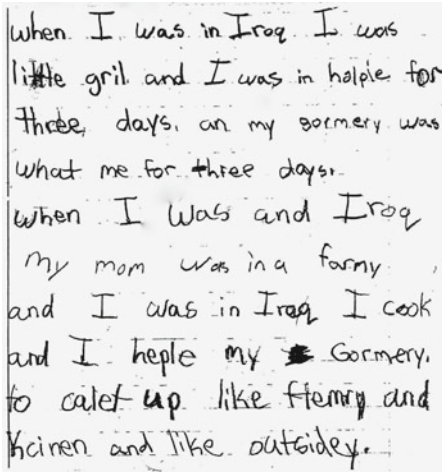 when I was in Iraq I was
little gril and I was in holpie for
three days. an my gormery was
what me for three days.
when I was and Iroq
my mom was in a farmy
and I was in Iraq I cook
and I heple my Gormery.
to calet up like ftemry and
kcinen and like outsidey.